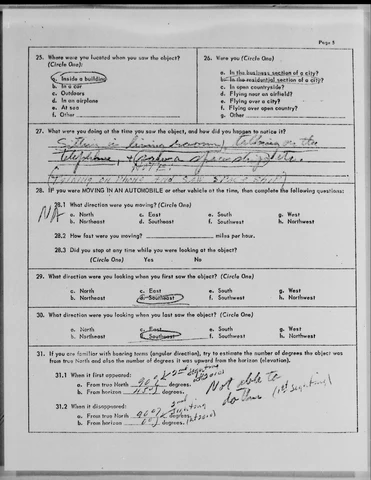 Page 5
25. Where were you located when you saw the object? (Circle One):
a. Inside a building
b. In a car
c. Outdoors
d. In an airplane
e. At sea
f. Other
26. Were you (Circle One)
a. In the business section of a city?
b. In the residential section of a city?
c. In open countryside?
d. Flying near an airfield?
e. Flying over a city?
f. Flying over open country?
g. Other
27. What were you doing at the time you saw the object, and how did you happen to notice it?
Sitting in living room, talking on the
telephone, + saw a
28. IF you were MOVING IN AN AUTOMOBILE or other vehicle at the time, then complete the following questions:
NA
28.1 What direction were you moving? (Circle One)
a. North c. East e. South g. West
b. Northeast d. Southeast f. Southwest h. Northwest
28.2 How fast were you moving? miles per hour.
28.3 Did you stop at any time while you were looking at the object?
(Circle One) Yes No
29. What direction were you looking when you first saw the object? (Circle One)
a. North c. East e. South g. West
b. Northeast d. Southeast f. Southwest h. Northwest
30. What direction were you looking when you last saw the object? (Circle One)
a. North c. East e. South g. West
b. Northeast d. Southeast f. Southwest h. Northwest
31. If you are familiar with bearing terms (angular direction), try to estimate the number of degrees the object was
from true North and also the number of degrees it was upward from the horizon (elevation).
31.1 When it first appeared:
a. From true North 90° degrees.
b. From horizon 45° degrees.
2nd sighting
Not able to
do this (1st sighting)
31.2 When it disappeared:
a. From true North 90° degrees.
b. From horizon degrees.
2nd
sighting